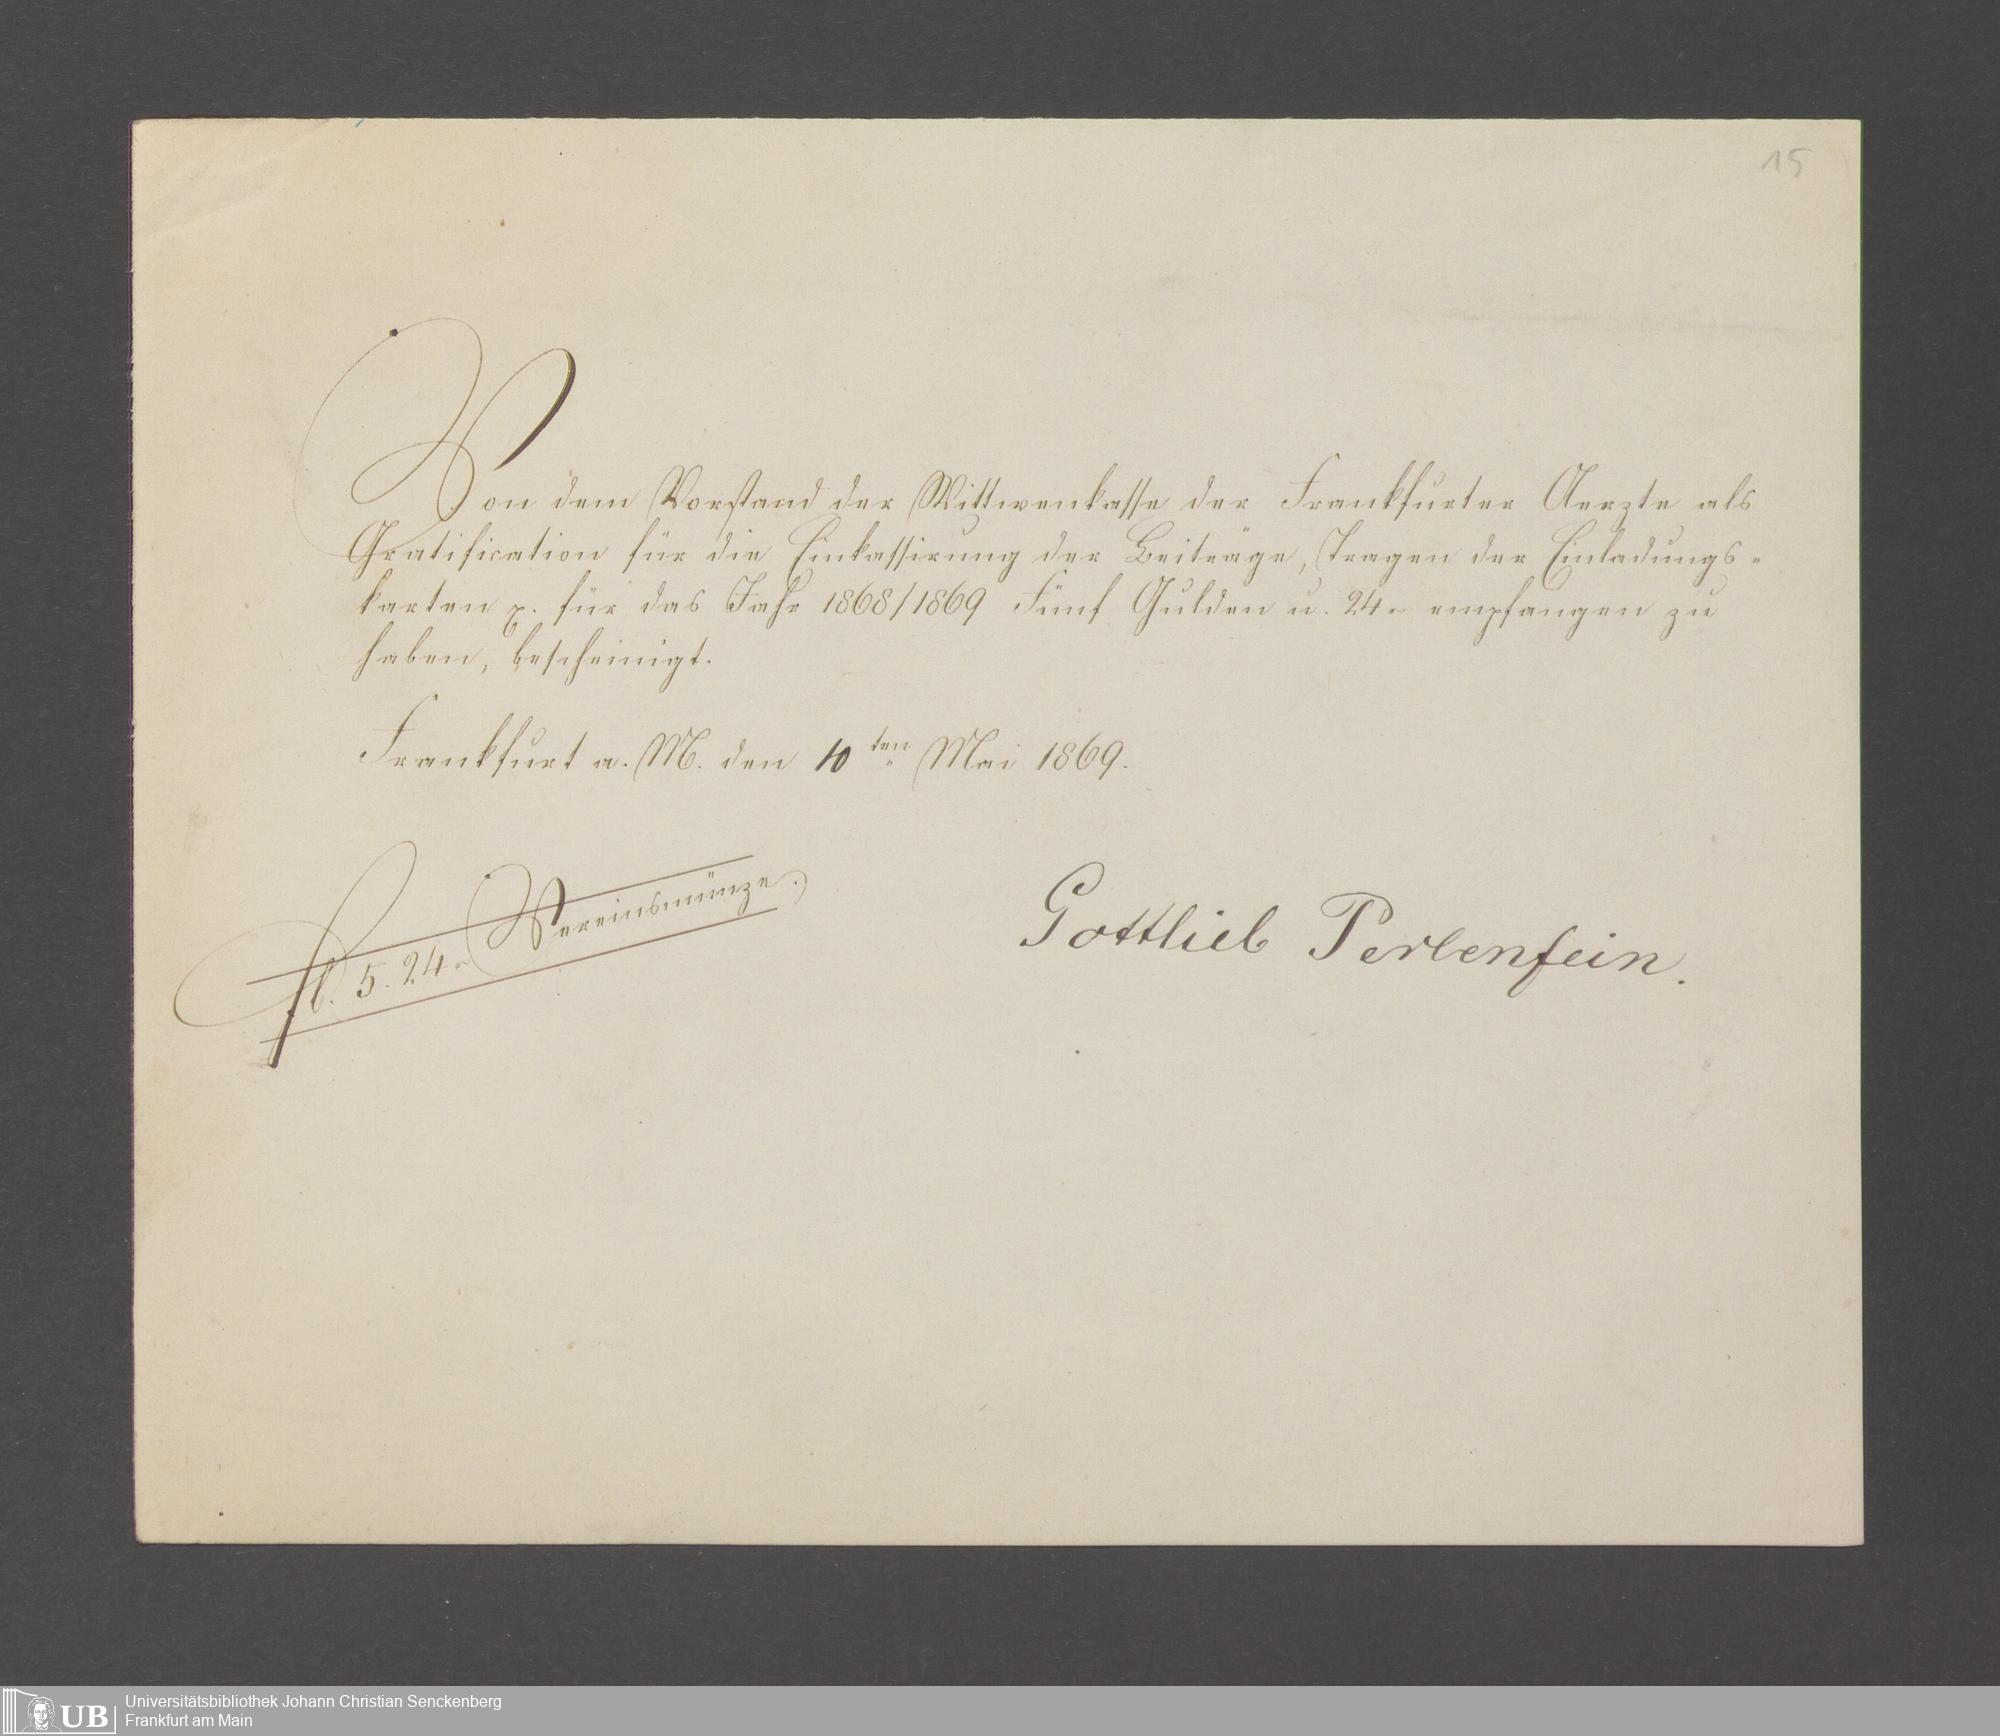 15
Von dem Vorstand der Wittwenkasse der Frankfurter Aerzte als
Gratification für die Einkassirung der Beiträge, Tragen der Einladungs-
karten p. für das Jahr 1868/1869 Fünf Gulden u. 24 x empfangen zu
haben, bescheinigt.
Frankfurt a. M. den 10ten Mai 1869.
fl. 5. 24 x Vereinsmünze.
Gottlieb Perlenfein.
UB Universitätsbibliothek Johann Christian Senckenberg
Frankfurt am Main